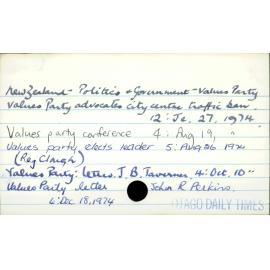 New Zealand - Politics & Government - Values Party
Values Party advocates city centre traffic ban.
12: Je. 27, 1974
Values party conference 4: Aug 19, "
Values party elects leader 5: Aug 26 1974
(Reg Clough)
Values Party: letters. J. B. Taverner. 4: Oct. 10 "
Values Party letter John R Perkins.
6: Dec 18, 1974
OTAGO DAILY TIMES